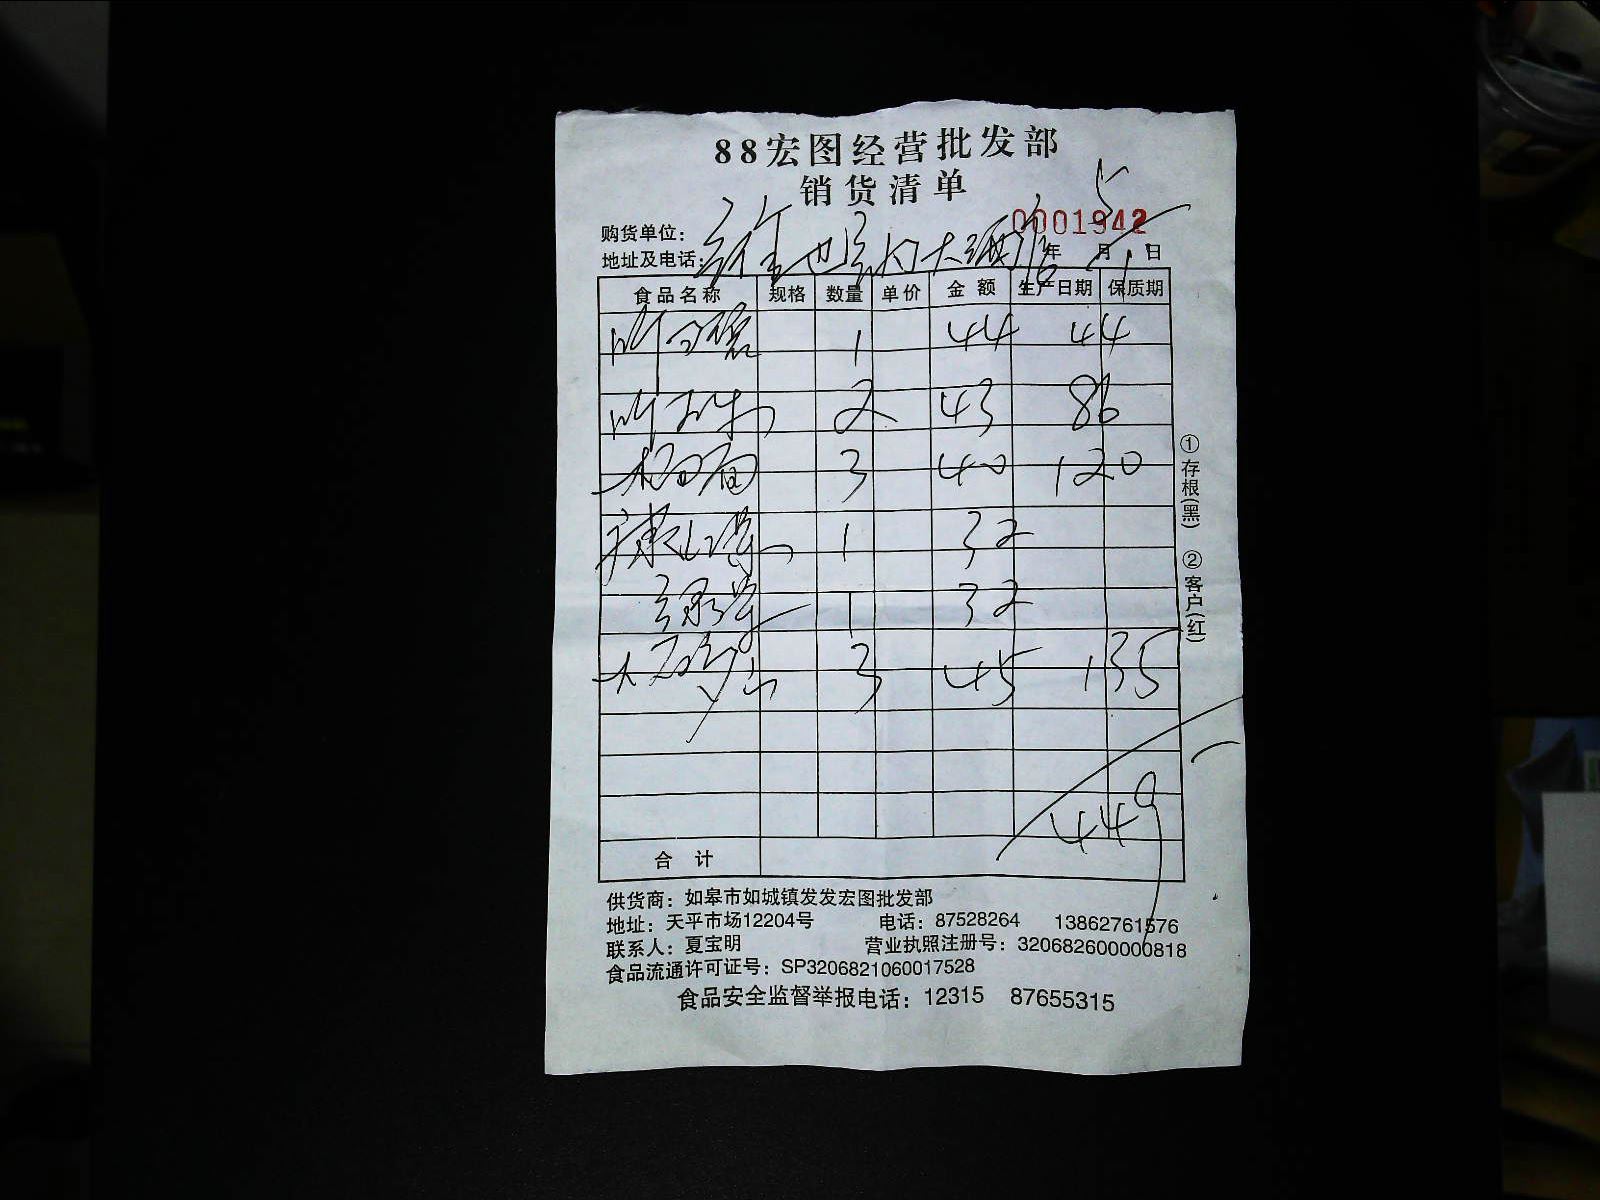 88宏图经营批发部
销货清单
0001942
购货单位：
地址及电话： 维也纳大酒店
年 5 月 1 日
食品名称 规格 数量 单价 金额 生产日期 保质期
1 44 44
2 43 86
3 40 120
1 32
1 32
3 45 135
449
合计
①存根(黑) ②客户(红)
供货商：如皋市如城镇发发宏图批发部
地址：天平市场12204号 电话：87528264 13862761576
联系人：夏宝明 营业执照注册号：320682600000818
食品流通许可证号：SP3206821060017528
食品安全监督举报电话：12315 87655315